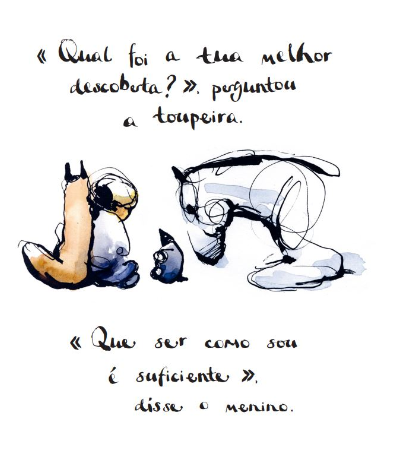 « Qual foi a tua melhor
descoberta? », perguntou
a toupeira.
« Que ser como sou
é suficiente »,
disse o menino.